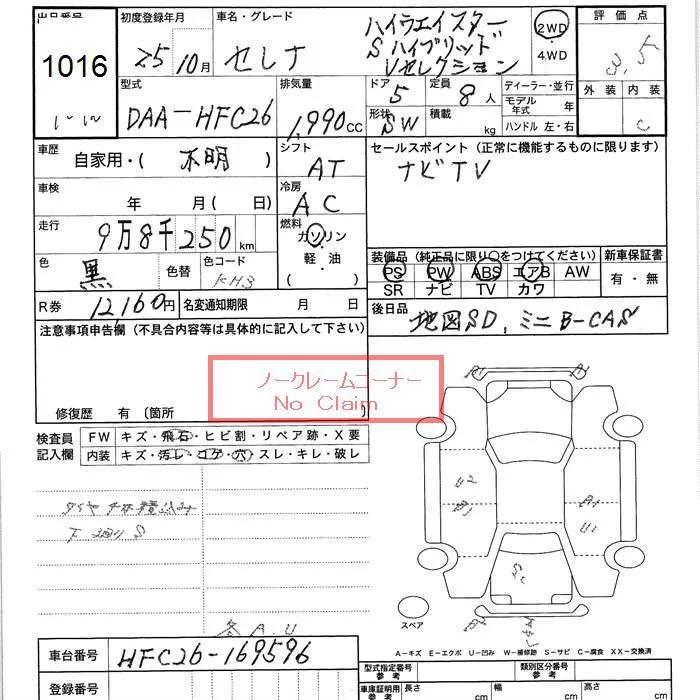 出品番号
1016
初度登録年月
25 10月
車名・グレード
セレナ
ハイウエイスター
Sハイブリッド
Vセレクション
2WD
・
4WD
評価点
3.5
型式
DAA-HFC26
排気量
1,990cc
ドア
5
定員
8人
形状
SW
積載
kg
ディーラー・並行
モデル年式 年
ハンドル 左・右
外装 内装
C
車歴
自家用・( 不明 )
シフト
AT
セールスポイント (正常に機能するものに限ります)
ナビTV
車検
年 月( 日)
冷房
AC
走行
9万8千250km
燃料
ガソリン
軽・油
( )
色
黒
色替
色コード
KH3
装備品 (純正品に限り○をつけてください)
PS PW ABS エアB AW
SR ナビ TV カワ
新車保証書
有・無
R券
12,160円
名変通知期限 月 日
後日品
地図SD, ミニB-CAS
注意事項申告欄 (不具合内容等は具体的に記入して下さい)
ノークレームコーナー
No Claim
修復歴 有 〔箇所 〕
検査員
記入欄
FW キズ・飛石・ヒビ割・リペア跡・X要
内装 キズ・汚レ・コゲ・穴・スレ・キレ・破レ
A1
U2
B1
A1
U1
S
スペア
各A.U
A-キズ E-エクボ U-凹み W-補修跡 S-サビ C-腐食 XX-交換済
車台番号
HFC26-169596
登録番号
型式指定番号
類別区分番号
車庫証明用
参考
長さ cm
幅 cm
高さ cm